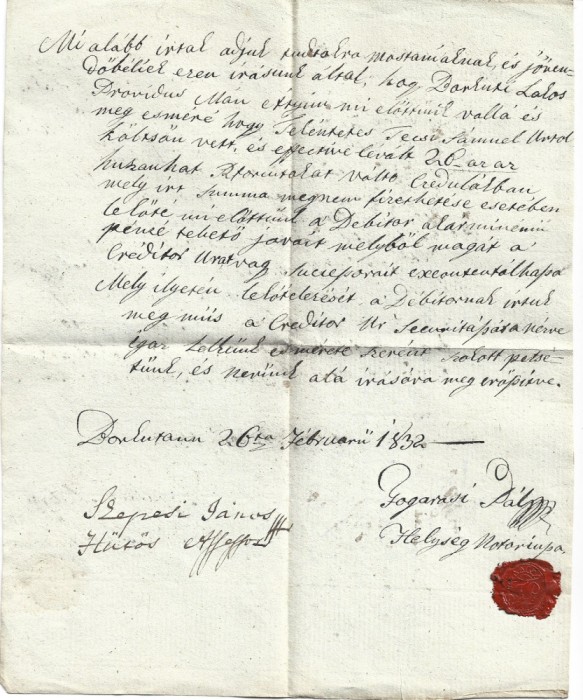 Mi alább irtak adjuk tudtokra mostaniaknak, és jöven-
dőbéliek ezen irásunk által, hogy Borkuti Lakos
Providus Mán mi előttünk vallá és
meg esméré hogy Tekéntetes Técsi Sámuel Urtol
költsön vett, és effective lévált 26 az az
huszanhat Rforintokat váltó Cedulákban
mely irt summa megnem fizethetése esetében
leköté mi előttünk a Debitor akarminemü
pénzé tehető javait melyből magát a
Creditor Ur avagy Successorait executuálhassa
Mely ilyetén lekötelezését a Debitornak irtuk
meg mü is a Creditor Ur Securitássára nézve
igaz Lelkünk esmérete szerént szokott petsé-
tünk, és nevünk alá irására meg erőssitve.
Borkutann 26ta Februarii 1832
Szepesi János
Hütös Assessor
Fogarasi Pál
Helység Notoriussa